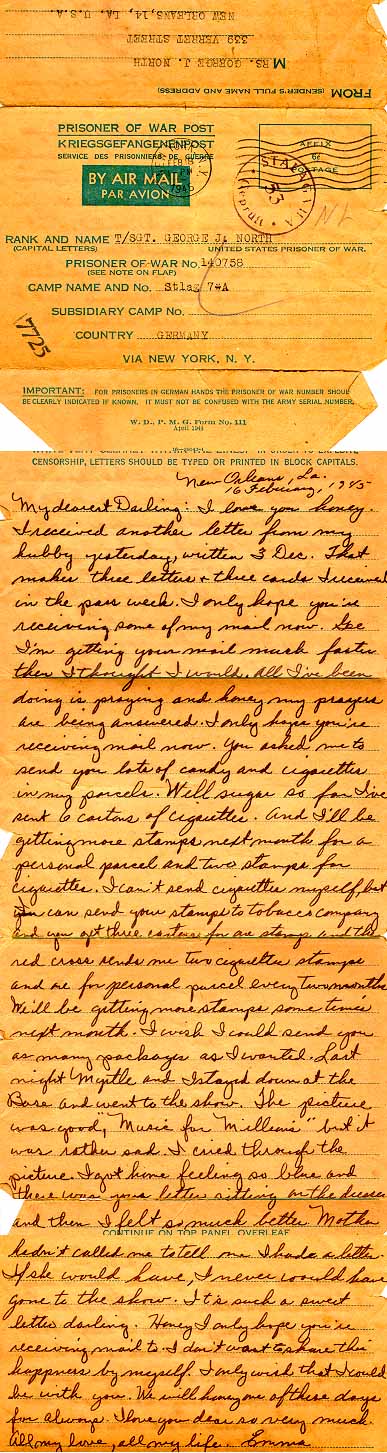 FROM (SENDER'S FULL NAME AND ADDRESS)
MRS. GORRGE J. NORTH
339 VERRET STREET
NEW ORLEANS,14, LA. U.S.A.
PRISONER OF WAR POST
KRIEGSGEFANGENENPOST
SERVICE DES PRISONNIERS DE GUERRE
BY AIR MAIL
PAR AVION
N.Y.
FEB 18
1945
AFFIX
6¢
POSTAGE
STALAG VII A
33
Geprüft
N L
RANK AND NAME T/SGT. GEORGE J. NORTH
(CAPITAL LETTERS) UNITED STATES PRISONER OF WAR.
PRISONER OF WAR No. 140758
(SEE NOTE ON FLAP)
CAMP NAME AND No. Stlag 7-A
SUBSIDIARY CAMP No.
7725
COUNTRY GERMANY
VIA NEW YORK, N. Y.
IMPORTANT: FOR PRISONERS IN GERMAN HANDS THE PRISONER OF WAR NUMBER SHOUL
BE CLEARLY INDICATED IF KNOWN. IT MUST NOT BE CONFUSED WITH THE ARMY SERIAL NUMBER.
W. D., P. M. G. Form No. 111
April 1944
CENSORSHIP, LETTERS SHOULD BE TYPED OR PRINTED IN BLOCK CAPITALS.
New Orleans, La.
16 February, 1945
My dearest Darling: I love you honey.
I received another letter from my
hubby yesterday, written 3 Dec. That
makes three letters + three cards I received
in the pass week. I only hope you're
receiving some of my mail now. Gee
I'm getting your mail much faster
then I thought I would. All I've been
doing is praying and honey my prayers
are being answered. I only hope you're
receiving mail now. You asked me to
send you lots of candy and cigarettes
in my parcels. Well sugar so far I've
sent 6 cartons of cigarettes. And I'll be
getting more stamps next month for a
personal parcel and two stamps for
cigarettes. I can't send cigarettes myself, but
can send your stamps to tobacco company
and you get three cartons for one stamp and the
red cross sends me two cigarettes stamps
and one for personal parcel every two months
We'll be getting more stamps some time
next month. I wish I could send you
as many packages as I wanted. Last
night Myrtle and I stayed down at the
Base and went to the show. The picture
was good, "Music for Millions" but it
was rather sad. I cried through the
picture. I got home feeling so blue and
there was your letter sitting on the dresser
and then I felt so much better Mother
CONTINUE ON TOP PANEL OVERLEAF
hadn't called me to tell me I had a letter.
If she would have, I never would have
gone to the show. It's such a sweet
letter darling. Honey I only hope you're
receiving mail to. I don't want to share this
happness by myself. I only wish that I could
be with you. We will honey one of these days
for always. I love you dear so very much.
All my love, all my life. Emma